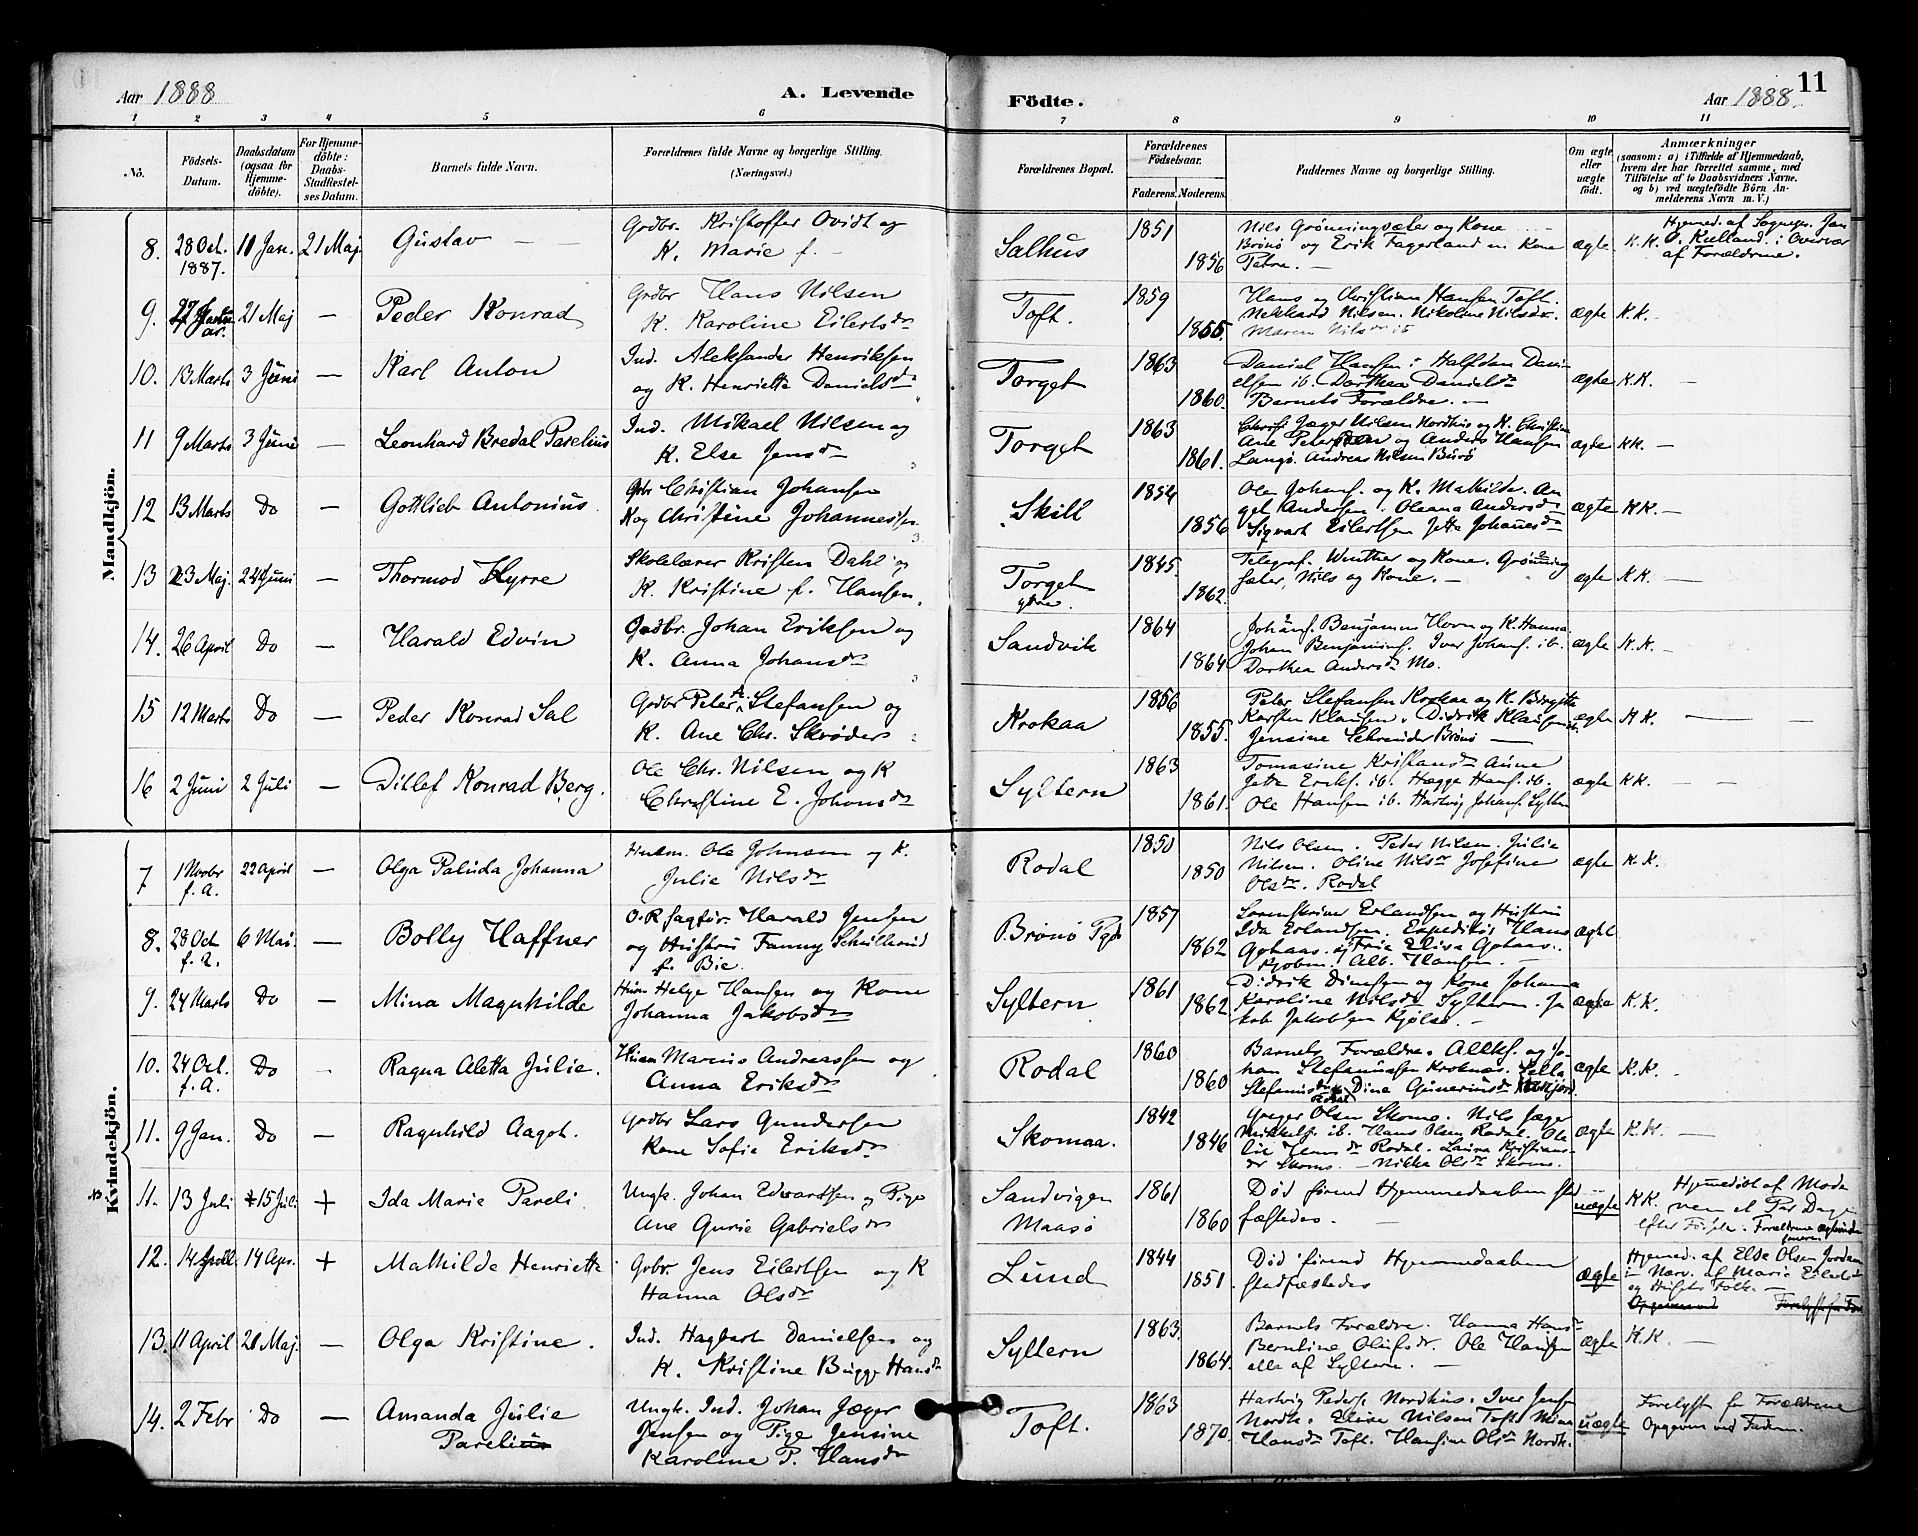 11
Aar 1888
A. Levende
Födte.
Aar 1888.
1 2 3 4 5 6 7 8 9 10 11
No.
Födsels-Datum.
Daabsdatum (ogsaa for Hjemmedöbte).
For Hjemmedöbte: Daabs-Stadfæstelses Datum.
Barnets fulde Navn.
Forældrenes fulde Navne og borgerlige Stilling. (Næringsvei.)
Forældrenes Bopæl.
Forældrenes Födselsaar.
Faderens. Moderens.
Faddernes Navne og borgerlige Stilling.
Om ægte eller uægte födt.
Anmærkninger
(saasom: a) i Tilfælde af Hjemmedaab, hvem der har forrettet samme, med Tilföielse af to Daabsvidners Navne. og b) ved uægtefödte Börn Anmelderens Navn m. V.)
Mandkjön.
8. 28 Oct. 1887. 11 Jan. 21 Maj Gustav — Grdbr. Kristoffer Ovidt og K. Marie f. — Salhus 1851 1856 Nils Grønningsæter og Kone Brønø og Erik Fagerland m. Kone Petra. — ægte K.K. Hjemed. af Sogneprs. Jan af Forældrene.
9. 21 Maj — Peder Konrad Grdbr Hans Nilsen K. Karoline Eilertsdr Toft. 1859 1855. Hans og Christian Hansen Toft. Nilsen. Nikoline Nilsdr. Maren Nilsdr ib ægte K.K.
10. 13 Marts 3 Juni — Karl Anton Ind. Aleksander Henriksen og K. Henriette Danielsdr Torget 1863 1860. Daniel Hansen. Halfdan Danielsen ib. Dorthea Danielsdr Barnets Forældre. — ægte K.K. —
11 9 Marts 3 Juni — Leonhard Bredal Parelius Ind. Mikael Nilsen og K. Else Jensdr Torget 1863 1861. Jæger Nilsen Nordhus og K. Christine Ane og Anders Hansen Langø. Andreas Nilsen ægte KK. —
12 13 Marts Do — Gottlieb Antonius. Gbr Christian Johansen K og Christine Johannessen Skill 1854 1856 Ole Johans. og K. Mathilde. Andersen. Oleana Andersdr Sigvart Eilertsen Jette Johansdr ægte KK. —
13 23 Maj. 24 Juni — Thormod Hyrre Skolelærer Kristen Dahl og K. Kristine f. Hansen. Torget 1845. 1862. Telegraf. Winther og Kone. Grønningsæter, Nils og Kone. — ægte K.K. —
14. 26 April Do — Harald Edvin Grdbr. Johan Eriksen og K. Anna Johansdr Sandvik 1864 1864 Johans. Benjamin Horn og K. Hanna Johan Benjamins. Iver Johans. ib. Dorthea Andersdr Mo. ægte K.K. —
15 12 Marts Do — Peder Konrad Sal Grdbr Peter A. Stefansen og K. Ane Chr. Skrøders Krokaa 1856 1855. Peter Stefansen Krokaa og K. Birgitte Karsten Klausen. Didrik Klausen ib. Jensine Schrøder Brønø — ægte K.K. —
16 2 Juni 2 Juli — Ditlef Konrad Berg. Ole Chr. Nilsen og K Christine E. Johansdr Syltern 1863 1861. Tomasine Kristiansdr Aune Jette Eriks. ib. Hægge Hans. ib. Ole Hansen ib. Hartvig Johans. Syltern ægte KK. —
Kvindekjön.
7 1 Novbr f. A. 22 April — Olga Paluda Johanna Husm. Ole Johnsen og K. Julie Nilsdr Rodal 1850 1850 Nils Olsen. Peder Nilsen. Julie Nilsen. Oline Nilsdr Josefine Olsdr. Rodal ægte K.K.
8. 28 Oct f. A. 6 Mai. — Bolly Haffner O.R. Sagfør. Harald Jensen og Hustru Fanny Schulterud f. Bie. Brønø Pgd 1857 1862 Sorenskriver Erlandsen og Hustru Ida Erlandsen. Expeditør Hans Alb. Hansen. — ægte
9. 24 Marts Do — Mina Magnhilde Husm Helge Hansen og Kone Johanna Jakobsdr Syltern 1861 1862 Didrik og Kone Johanna Karoline Nilsdr Syltern. Jakob Jakobsen Kjølsø. — ægte K.K.
10. 24 Oct. f. A. Do — Ragna Aletta Julie. Husm Marius Andreassen og Anna Eriksdr Rodal 1860 1860 Barnets Forældre. og Johan Stefanussen Kroknæs. Stefanusdr Dine Gunneriusdr ægte K.K. —
11. 9 Jan. Do — Ragnhild Aagot. Grdbr Lars Gundersen Kone Sofie Eriksdr Skomaa. 1842 1846 Greger Olsen Skomo. Nils Jæger Mikkels. ib. Hans Olsen Rodal. Oline Hansdr Rodal. Laura Kristiansdr Skomo. — Nikka Olsdr Skomo. ægte K.K. —
11. 13 Juli *15 Juli + Ida Marie Pareli Ungk. Johan Edvardsen og Pige Ane Gurie Gabrielsdr Sandvigen Maasø 1861 1860 Død førend Hjemmedaaben stadfæstedes. — uægte KK. Hjemedöbt af Moderen et Par Dage efter Fødsel. Forældrene
12. 14 April 14 Apr. + Mathilde Henriette Grbr. Jens Eilertsen og K Hanna Olsdr Lund 1844 1851. Død førend Hjemmedaaben stadfæstedes ægte Hjemed. af Else Olsen Jordam. i Nærv. af Marie Eilertsdr og Husets Folk. —
13. 11 April 21 Maj. — Olga Kristine. Ind. Hagbart Danielsen og K. Kristine Bugge Hansdr Syltern 1863. 1864. Barnets Forældre. Hanna Hansdr Berntine Olufsdr. Ole Hansen alle af Syltern. — ægte K.K. —
14. 2 Febr Do — Amanda Julie Parelius Ungk. Ind. Johan Jæger Jensen og Pige Jensine Karoline P. Hansdr Toft. 1863 1870. Hartvig Peders. Nordhus. Iver Jensen Nordh. Elise Nilsen Toft. Mina Hansdr Toft. Hansine Olsdr Nordh. uægte Forelyst for Forældrene Opgiven ved Faderen.